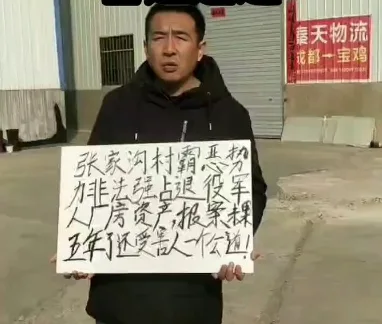 秦天物流
成都一宝鸡
张家沟村霸恶势
力非法强占退役军
人厂房资产,报案
五年了还受害人一个公道!